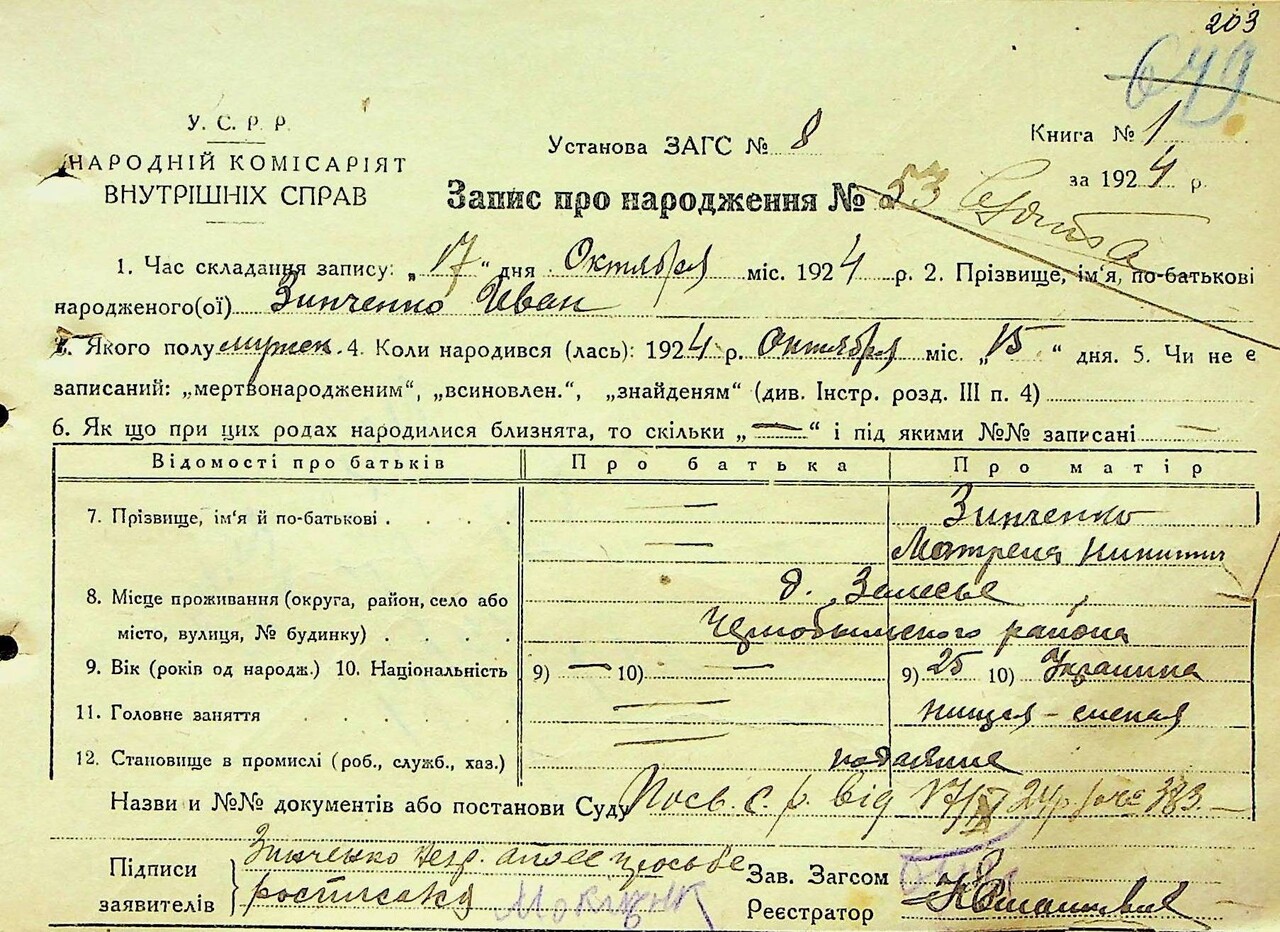 203
649
У. С. Р. Р.
НАРОДНІЙ КОМІСАРІЯТ
ВНУТРІШНІХ СПРАВ
Установа ЗАГС № 8
Книга № 1
за 1924 р.
Запис про народження № 53 Сирота
1. Час складання запису: „17“ дня Октября міс. 1924 р. 2. Прізвище, ім'я, по-батькові
народженого(ої) Зинченко Иван
3. Якого полу мужск. 4. Коли народився (лась): 1924 р. Октября міс. „15“ дня. 5. Чи не є
записаний: „мертвонародженим“, „всиновлен.“, „знайденям“ (див. Інстр. розд. III п. 4)
6. Як що при цих родах народилися близнята, то скільки „—“ і під якими №№ записані —
Відомості про батьків Про батька Про матір
7. Прізвище, ім'я й по-батькові — Зинченко
— Матрена Никитич
8. Місце проживання (округа, район, село або д. Залесье
місто, вулиця, № будинку) Чернобыльского района
9. Вік (років од народж.) 10. Національність 9) — 10) — 9) 25 10) Украинка
11. Головне заняття — нищая - слепая
12. Становище в промислі (роб., служб., хаз.) — подаяние
Назви и №№ документів або постанови Суду Посв. с. р. від 17/X 24р. за № 383.—
Підписи Зинченко негр. а по ее просьбе
заявителів росписался
Зав. Загсом
Реєстратор